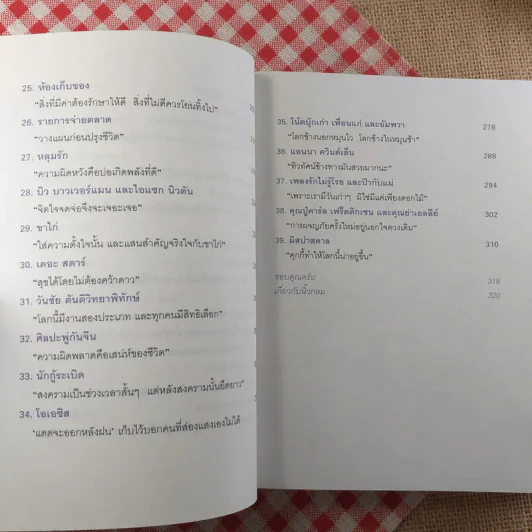 25. ห้องเก็บของ
"สิ่งที่มีค่าต้องรักษาให้ดี สิ่งที่ไม่ดีควรโยนทิ้งไป"
26. รายการจ่ายตลาด
"วางแผนก่อนปรุงชีวิต"
27. หลุมรัก
"ความผิดหวังคือบ่อเกิดพลังที่ดี"
28. บิว บาวเวอร์แมน และไอแซก นิวตัน
"จิตใจจดจ่อจึงจะเจอะเจอ"
29. ขาไก่
"ใส่ความตั้งใจนั้น และแสนสำคัญจริงใจกับขาไก่"
30. เดอะ สตาร์
"สุขได้โดยไม่ต้องคว้าดาว"
31. วันชัย ตันติวิทยาพิทักษ์
"โลกนี้มีงานสองประเภท และทุกคนมีสิทธิเลือก"
32. ศิลปะพู่กันจีน
"ความผิดพลาดคือเสน่ห์ของชีวิต"
33. นักกู้ระเบิด
"สงครามเป็นช่วงเวลาสั้นๆ แต่หลังสงครามนั้นยืดยาว"
34. โอเอซิส
'แดดจะออกหลังฝน' เก็บไว้บอกคนที่ส่องแสงเองไม่ได้
35. โน้ตบุ๊กเก่า เพื่อนแก่ และอัมพวา 276
"โลกข้างนอกหมุนไว โลกข้างในหมุนช้า"
36. แอนนา ควินด์เล็น 286
"ทิวทัศน์ข้างทางมันสวยมากนะ"
37. เพลงรักไม่รู้โรย และป้ากับแม่ 294
"เพราะเรามีวันเก่าๆ มิใช่มีแค่เพียงดอกไม้"
38. คุณปู่คาร์ล เฟร็ดดิกเซน และคุณย่าเอลลี่ 302
"การผจญภัยครั้งใหม่อยู่นอกใจดวงเดิม"
39. มิสปาสคาล 310
"คุกกี้ทำให้โลกนี้น่าอยู่ขึ้น"
ขอบคุณครับ 318
เกี่ยวกับนิ้วกลม 320